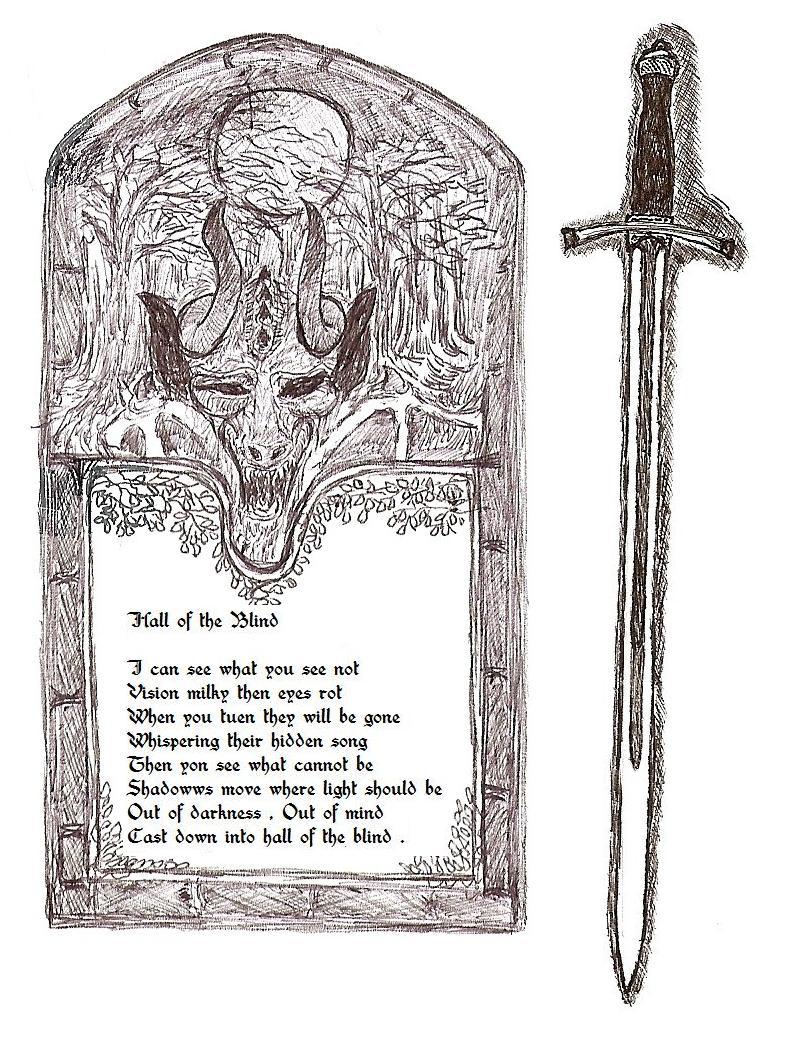 Hall of the Blind
I can see what you see not
Vision milky then eyes rot
When you tuen they will be gone
Whispering their hidden song
Then yon see what cannot be
Shadowws move where light should be
Out of darkness , Out of mind
Cast down into hall of the blind .